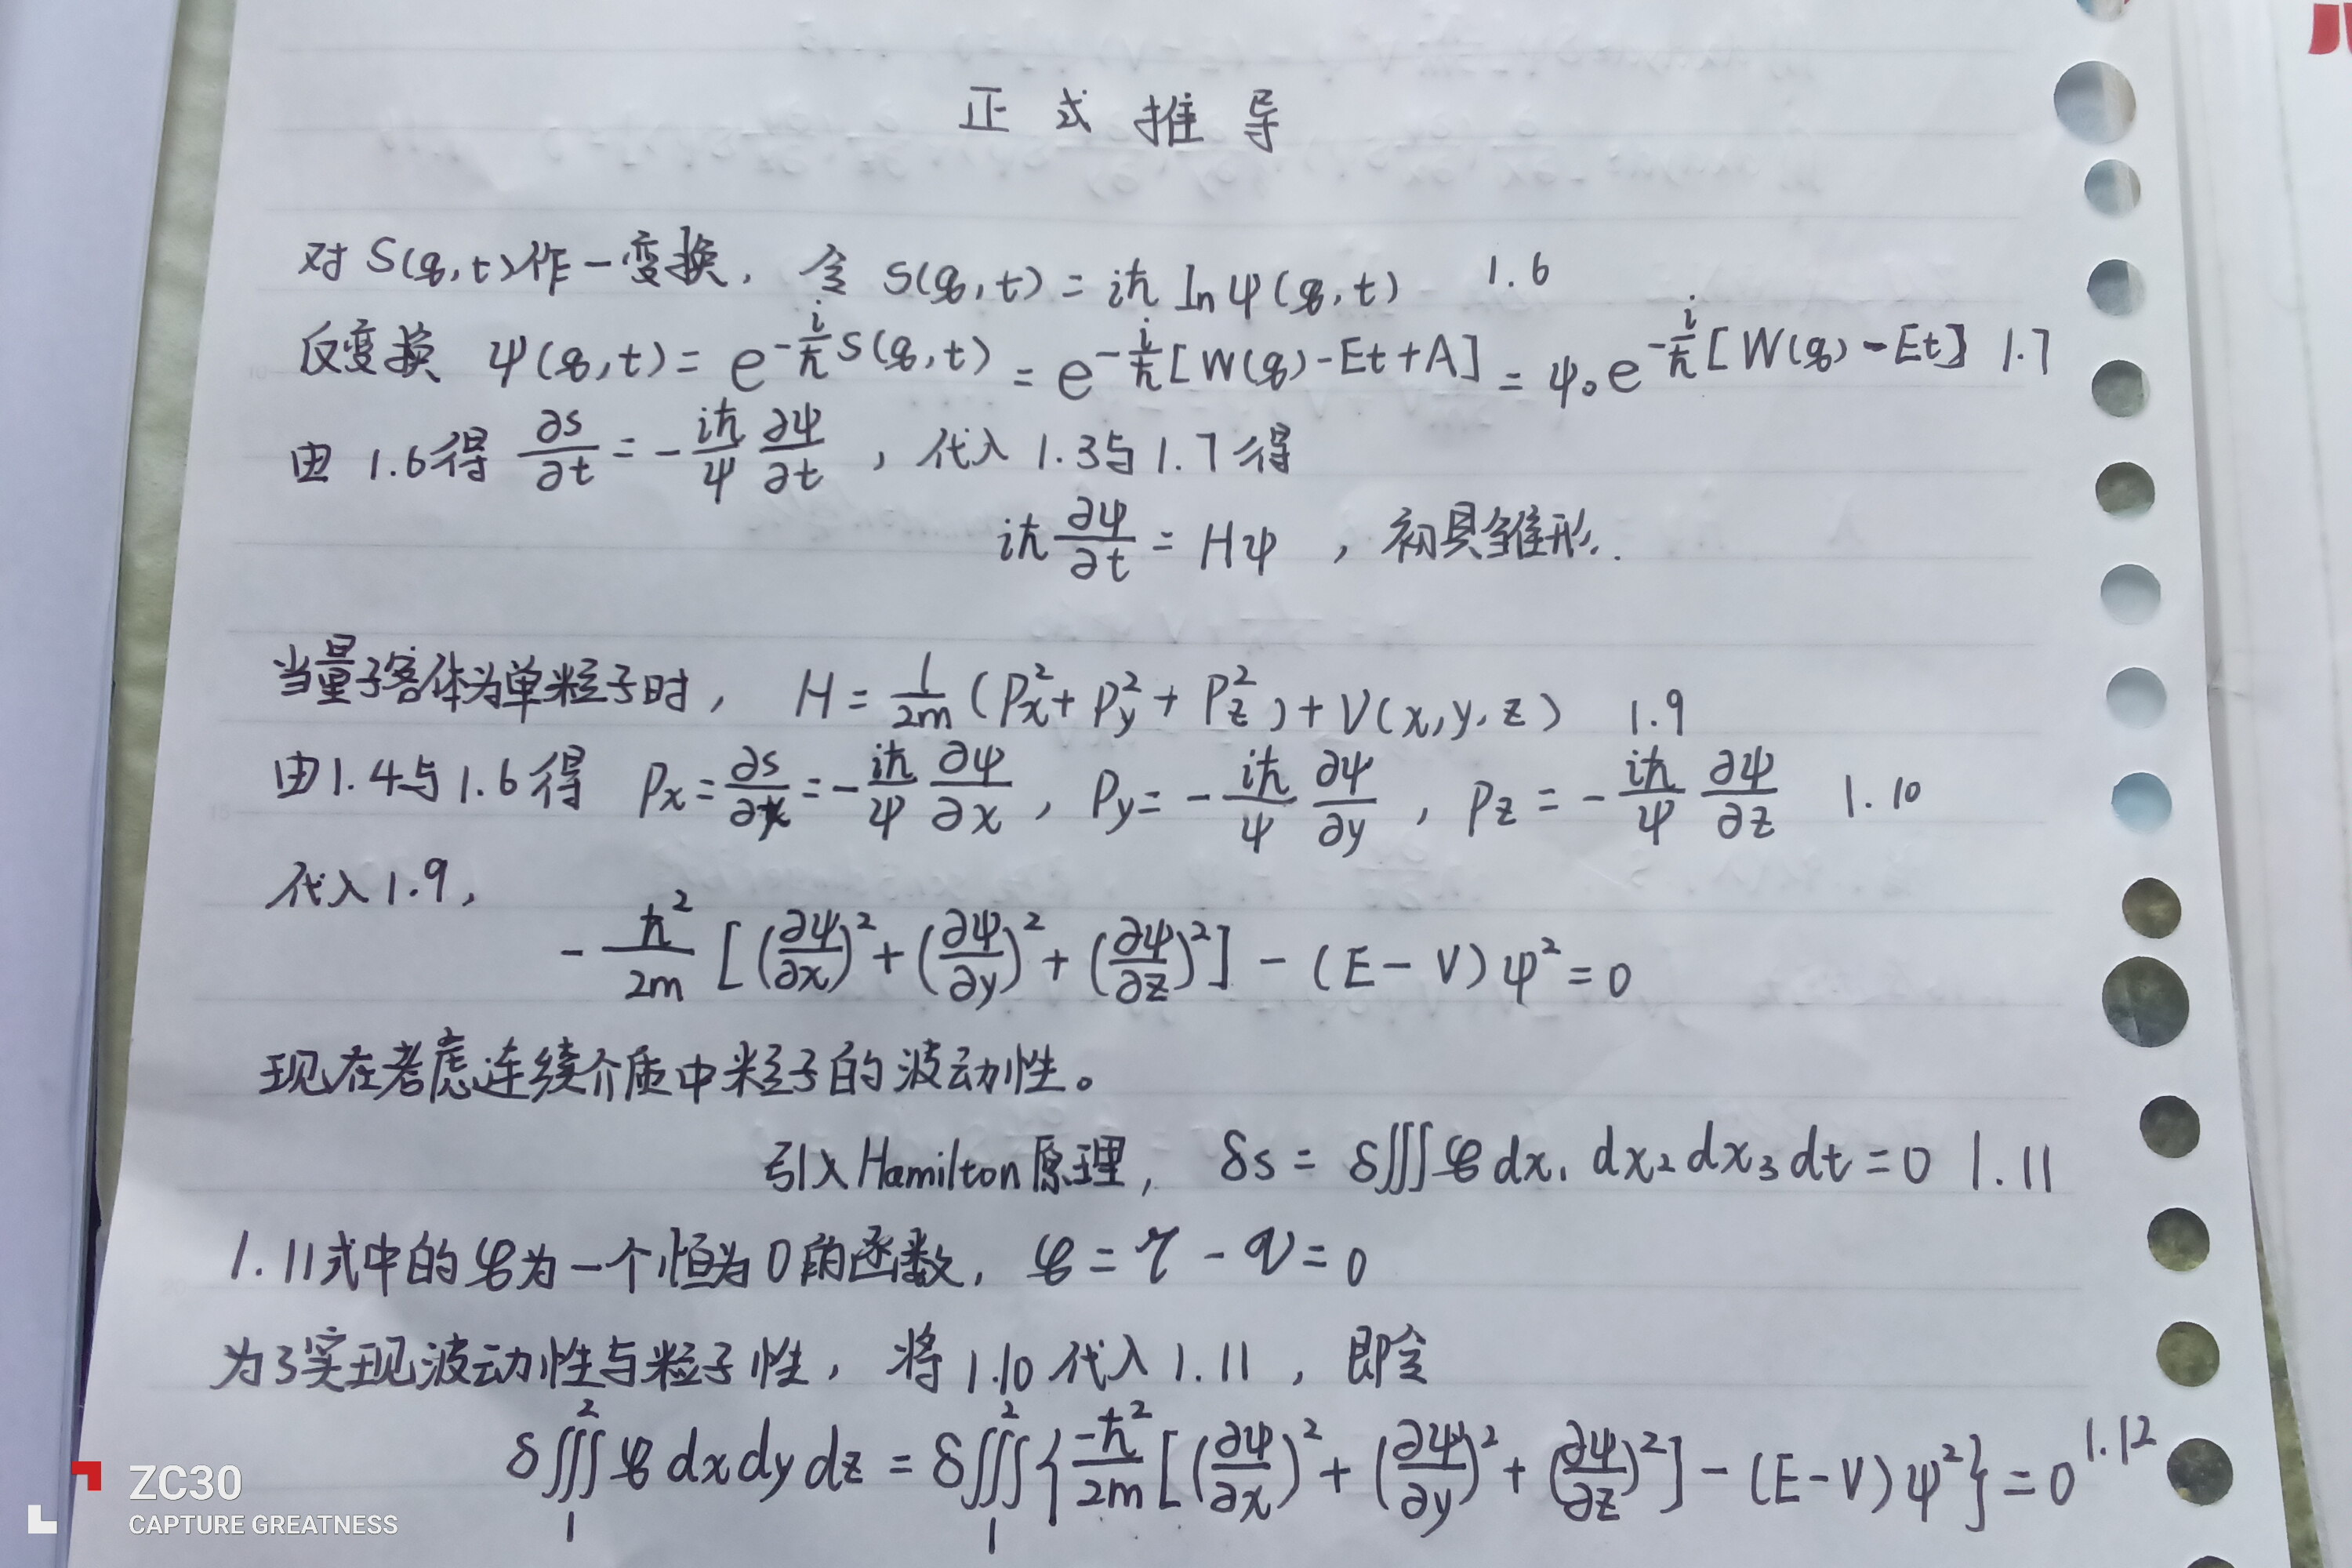 正式推导
对S(q,t)作一变换, 令 S(q,t) = iℏ lnψ(q,t) 1.6
反变换 ψ(q,t) = e^{-i/ℏ S(q,t)} = e^{-i/ℏ [W(q)-Et+A]} = ψ₀e^{-i/ℏ [W(q)-Et]} 1.7
由1.6得 ∂s/∂t = -iℏ/ψ ∂ψ/∂t , 代入1.3与1.7得
iℏ ∂ψ/∂t = Hψ , 初具雏形.
当量子客体为单粒子时, H = 1/2m (Px²+Py²+Pz²)+V(x,y,z) 1.9
由1.4与1.6得 Px = ∂s/∂x = -iℏ/ψ ∂ψ/∂x , Py = -iℏ/ψ ∂ψ/∂y , Pz = -iℏ/ψ ∂ψ/∂z 1.10
代入1.9,
-ℏ²/2m [(∂ψ/∂x)²+(∂ψ/∂y)²+(∂ψ/∂z)²] - (E-V)ψ² = 0
现在考虑连续介质中粒子的波动性。
引入Hamilton原理, δs = δ∭ℒ dx₁ dx₂ dx₃ dt = 0 1.11
1.11式中的ℒ为一个恒为0的函数, ℒ = 𝒯 - 𝒱 = 0
为了实现波动性与粒子性, 将1.10代入1.11, 即令
δ∭₁² ℒ dx dy dz = δ∭₁² {-ℏ²/2m [(∂ψ/∂x)²+(∂ψ/∂y)²+(∂ψ/∂z)²] - (E-V)ψ²} = 0 1.12
ZC30
CAPTURE GREATNESS